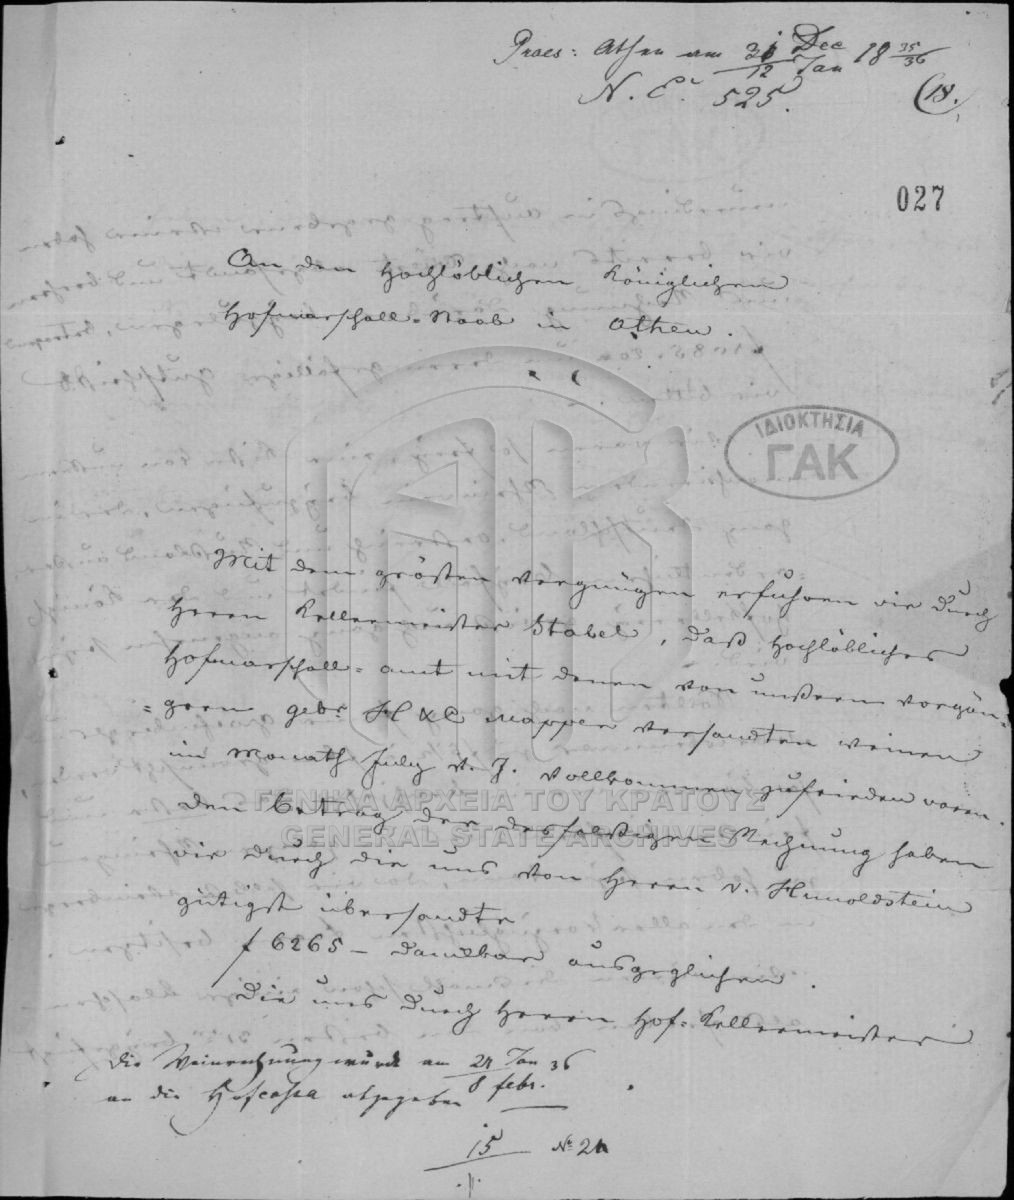 Praes: Athen am 31 Dec / 12 Jan 18 35/36
N. E. 525.
(18.
027
An den Hochlöblichen Königlichen
Hofmarschall-Staab in Athen.
ΙΔΙΟΚΤΗΣΙΑ
ΓΑΚ
Mit dem grösten Vergnügen erfuhren wir durch
Herrn Kellermeister Stabel, daß Hochlöbliches
Hofmarschall-amt mit denen von unßern Vorgän-
gern gebr. H & C Mapper versandten Weinen
im Monath July v. J. vollkommen zufrieden waren.
Den Betrag der desfalsigen Rechnung haben
wir durch die uns von Herrn v. Hunoldstein
gütigst übersandte
f 6265 – dankbar ausgeglichen.
Die uns durch Herrn Hof-Kellermeister
ΓΕΝΙΚΑ ΑΡΧΕΙΑ ΤΟΥ ΚΡΑΤΟΥΣ
GENERAL STATE ARCHIVES
Die Weinrechnung wurde am 24 Jan / 8 febr. 36
an die Hofcassa abgegeben
15 № 21